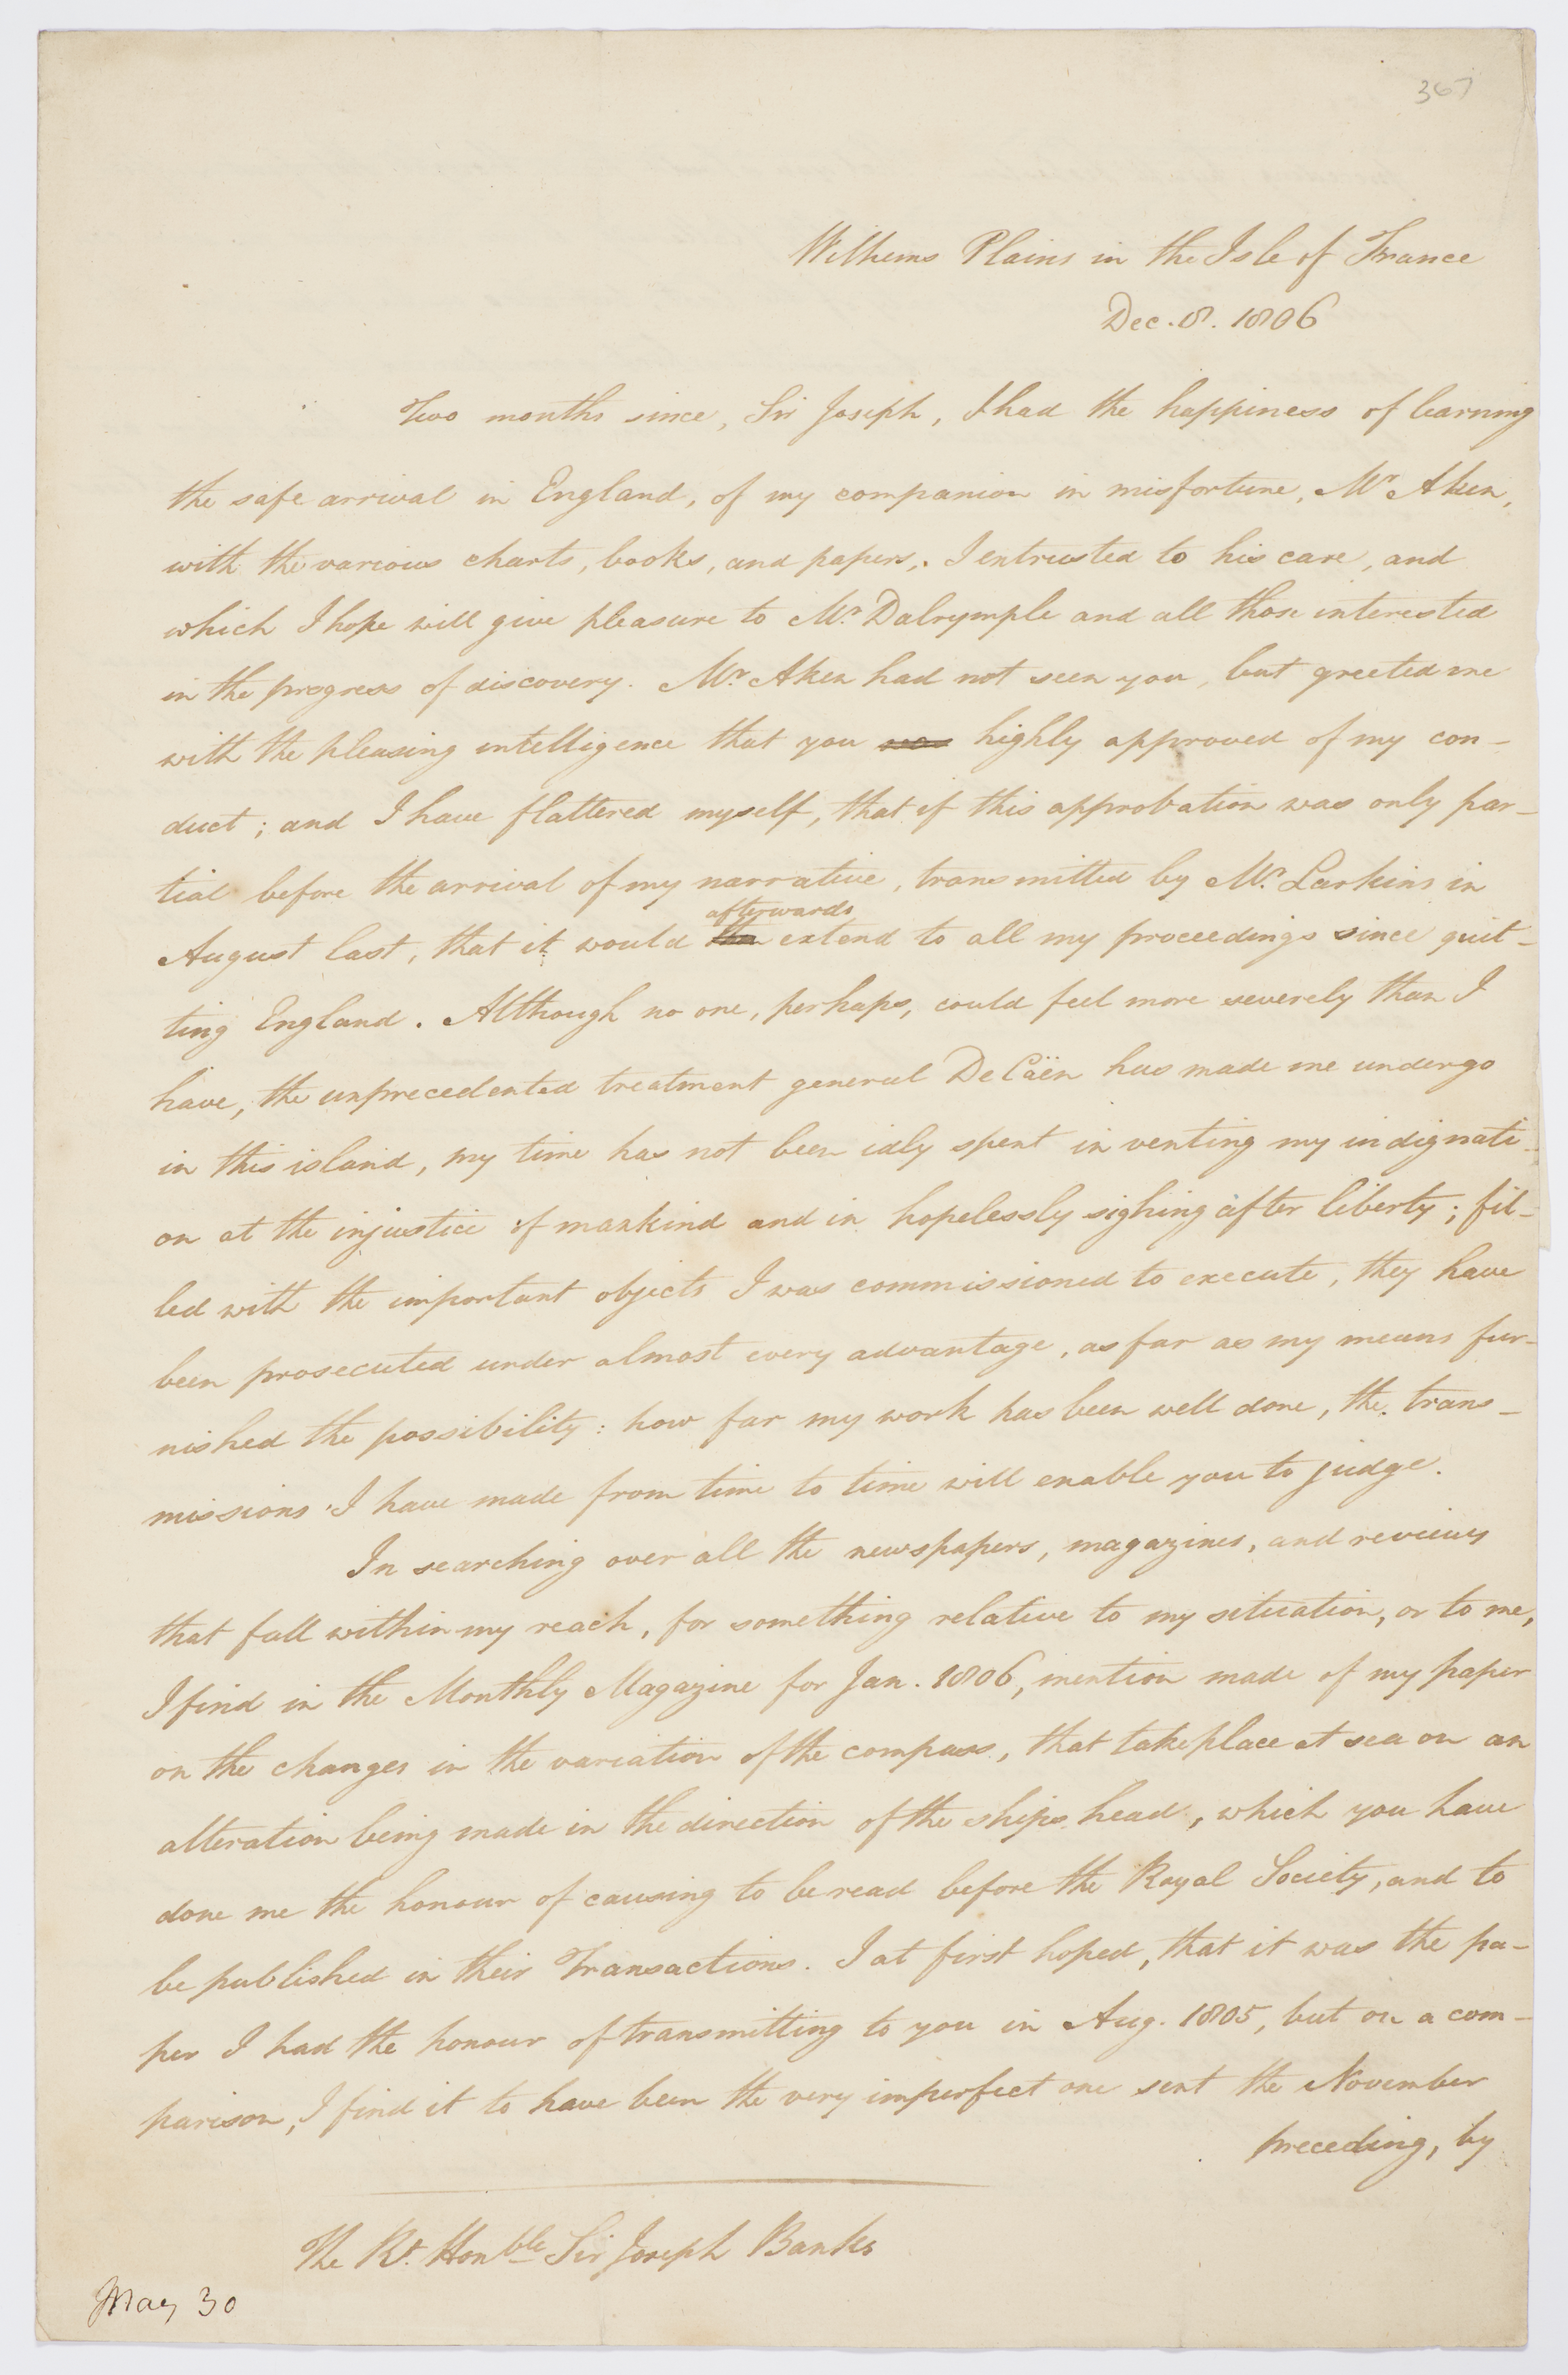 367
Wilhems Plains in the Isle of France
Dec. 8. 1806
Two months since, Sir Joseph, I had the happiness of learning
the safe arrival in England, of my companion in misfortune, Mr Aken,
with the various charts, books, and papers, I entrusted to his care, and
which I hope will give pleasure to Mr. Dalrymple and all those interested
in the progress of discovery. Mr. Aken had not seen you, but greeted me
with the pleasing intelligence that you highly approved of my con-
duct; and I have flattered myself, that if this approbation was only par-
tial before the arrival of my narrative, transmitted by Mr. Larkins in
afterwards
August last, that it would extend to all my proceedings since quit-
ting England. Although no one, perhaps, could feel more severely than I
have, the unprecedented treatment general De Cäen has made me undergo
in this island, my time has not been idly spent in venting my indignati-
on at the injustice of mankind and in hopelessly sighing after liberty; fil-
led with the important objects I was commissioned to execute, they have
been prosecuted under almost every advantage, as far as my means fur-
nished the possibility: how far my work has been well done, the trans-
missions I have made from time to time will enable you to judge.
In searching over all the newspapers, magazines, and reviews
that fall within my reach, for something relative to my situation, or to me,
I find in the Monthly Magazine for Jan. 1806, mention made of my paper
on the changes in the variation of the compass, that take place at sea on an
alteration being made in the direction of the ships head, which you have
done me the honour of causing to be read before the Royal Society, and to
be published in their Transactions. I at first hoped, that it was the pa-
per I had the honour of transmitting to you in Aug. 1805, but on a com-
parison, I find it to have been the very imperfect one sent the November
preceding, by
The Rt. Honble Sir Joseph Banks
May 30